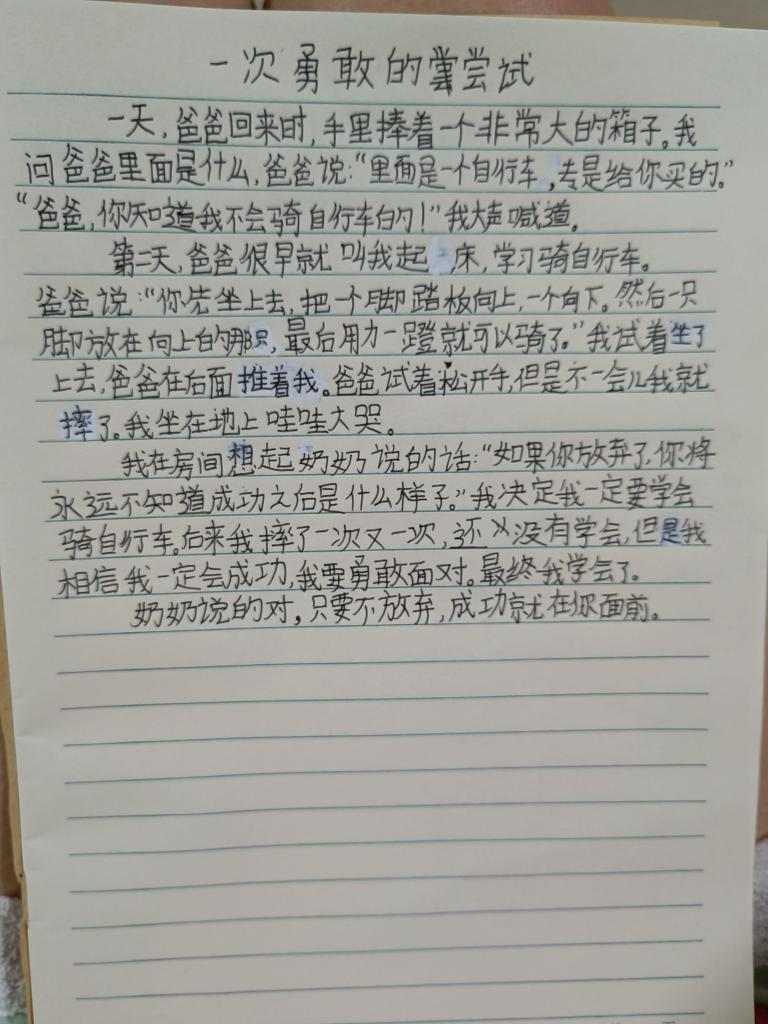 一次勇敢的尝试
一天,爸爸回来时,手里捧着一个非常大的箱子。我
问爸爸里面是什么,爸爸说:“里面是一个自行车,专是给你买的。”
“爸爸,你知道我不会骑自行车的!”我大声喊道。
第二天,爸爸很早就叫我起床,学习骑自行车。
爸爸说:“你先坐上去,把一个脚踏板向上,一个向下。然后一只
脚放在向上的那只,最后用力一蹬就可以骑了。”我试着坐了
上去,爸爸在后面推着我。爸爸试着松开手,但是不一会儿我就
摔了。我坐在地上哇哇大哭。
我在房间想起奶奶说的话:“如果你放弃了,你将
永远不知道成功之后是什么样子。”我决定我一定要学会
骑自行车。后来我摔了一次又一次,还没有学会,但是我
相信我一定会成功,我要勇敢面对。最终我学会了。
奶奶说的对,只要不放弃,成功就在你面前。